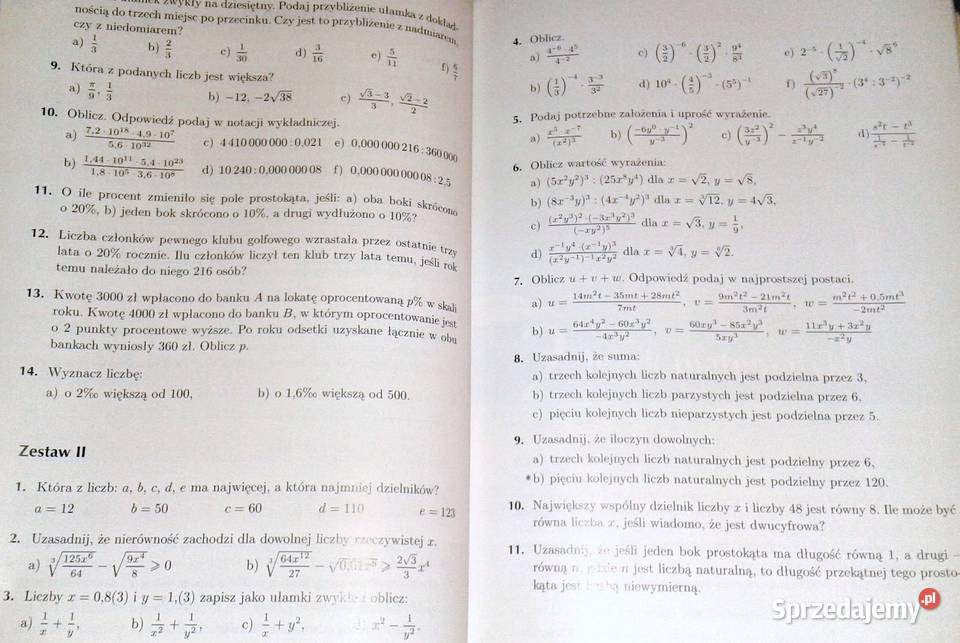 zwykły na dziesiętny. Podaj przybliżenie ułamka z dokład-
nością do trzech miejsc po przecinku. Czy jest to przybliżenie z nadmiarem,
czy z niedomiarem?
a) 1/3 b) 2/3 c) 1/30 d) 3/16 e) 5/11 f) 5/7
9. Która z podanych liczb jest większa?
a) π/9, 1/3 b) −12, −2√38 c) (√3−3)/3, (√2−2)/2
10. Oblicz. Odpowiedź podaj w notacji wykładniczej.
a) (7,2 · 10¹⁸ · 4,9 · 10⁷)/(5,6 · 10³²) c) 4 410 000 000 : 0,021 e) 0,000 000 216 : 360 000
b) (1,44 · 10¹¹ · 5,4 · 10²³)/(1,8 · 10⁵ · 3,6 · 10⁸) d) 10 240 : 0,000 000 08 f) 0,000 000 000 08 : 2,5
11. O ile procent zmieniło się pole prostokąta, jeśli: a) oba boki skrócono
o 20%, b) jeden bok skrócono o 10%, a drugi wydłużono o 10%?
12. Liczba członków pewnego klubu golfowego wzrastała przez ostatnie trzy
lata o 20% rocznie. Ilu członków liczył ten klub trzy lata temu, jeśli rok
temu należało do niego 216 osób?
13. Kwotę 3000 zł wpłacono do banku A na lokatę oprocentowaną p% w skali
roku. Kwotę 4000 zł wpłacono do banku B, w którym oprocentowanie jest
o 2 punkty procentowe wyższe. Po roku odsetki uzyskane łącznie w obu
bankach wyniosły 360 zł. Oblicz p.
14. Wyznacz liczbę:
a) o 2‰ większą od 100, b) o 1,6‰ większą od 500.
Zestaw II
1. Która z liczb: a, b, c, d, e ma najwięcej, a która najmniej dzielników?
a = 12 b = 50 c = 60 d = 110 e = 123
2. Uzasadnij, że nierówność zachodzi dla dowolnej liczby rzeczywistej x.
a) ∛(125x⁶/64) − √(9x⁴/8) ⩾ 0 b) ∛(64x¹²/27) − √(0,01x⁸) ⩾ (2√3/3)x⁴
3. Liczby x = 0,8(3) i y = 1,(3) zapisz jako ułamki zwykłe i oblicz:
a) 1/x + 1/y, b) 1/x² + 1/y², c) 1/x + y², d) x² − 1/y².
4. Oblicz.
a) (4⁻⁶ · 4⁵)/4⁻² c) (3/2)⁻⁶ · (3/2)² · 9⁴/8³ e) 2⁻⁵ · (1/√2)⁻⁴ · √8⁶
b) (1/3)⁻⁴ · 3⁻³/3² d) 10⁴ · (4/5)⁻³ · (5⁵)⁻¹ f) (√3)⁸/(√27)⁻² · (3⁴ : 3⁻²)⁻²
5. Podaj potrzebne założenia i uprość wyrażenie.
a) (x⁵ · x⁻⁷)/(x²)³ b) ((−6y⁰ · y⁻¹)/y⁻³)² c) (3z²/y⁻³)² − z³y⁴/(z⁻¹y⁻²) d)
6. Oblicz wartość wyrażenia:
a) (5x²y²)³ : (25x⁸y⁴) dla x = √2, y = √8,
b) (8x⁻³y)³ : (4x⁻⁴y²)³ dla x = ∛12, y = 4√3,
c) ((x²y³)² · (−3x³y²)³)/(−xy²)⁵ dla x = √3, y = 1/9,
d) (x⁻¹y⁴ · (x⁻¹y)³)/((x²y⁻¹)⁻¹x²y²) dla x = ∛4, y = ⁶√2.
7. Oblicz u + v + w. Odpowiedź podaj w najprostszej postaci.
a) u = (14m²t − 35mt + 28mt²)/7mt, v = (9m²t² − 21m²t)/3m²t, w = (m²t² + 0,5mt³)/−2mt²
b) u = (64x⁴y² − 60x³y²)/−4x³y², v = (60xy³ − 85x²y³)/5xy³, w = (11x³y + 3x²y)/−x²y
8. Uzasadnij, że suma:
a) trzech kolejnych liczb naturalnych jest podzielna przez 3,
b) trzech kolejnych liczb parzystych jest podzielna przez 6,
c) pięciu kolejnych liczb nieparzystych jest podzielna przez 5.
9. Uzasadnij, że iloczyn dowolnych:
a) trzech kolejnych liczb naturalnych jest podzielny przez 6,
*b) pięciu kolejnych liczb naturalnych jest podzielny przez 120.
10. Największy wspólny dzielnik liczby x i liczby 48 jest równy 8. Ile może być
równa liczba x, jeśli wiadomo, że jest dwucyfrowa?
11. Uzasadnij, że jeśli jeden bok prostokąta ma długość równą 1, a drugi –
równą n, gdzie n jest liczbą naturalną, to długość przekątnej tego prosto-
kąta jest liczbą niewymierną.
Sprzedajemy.pl